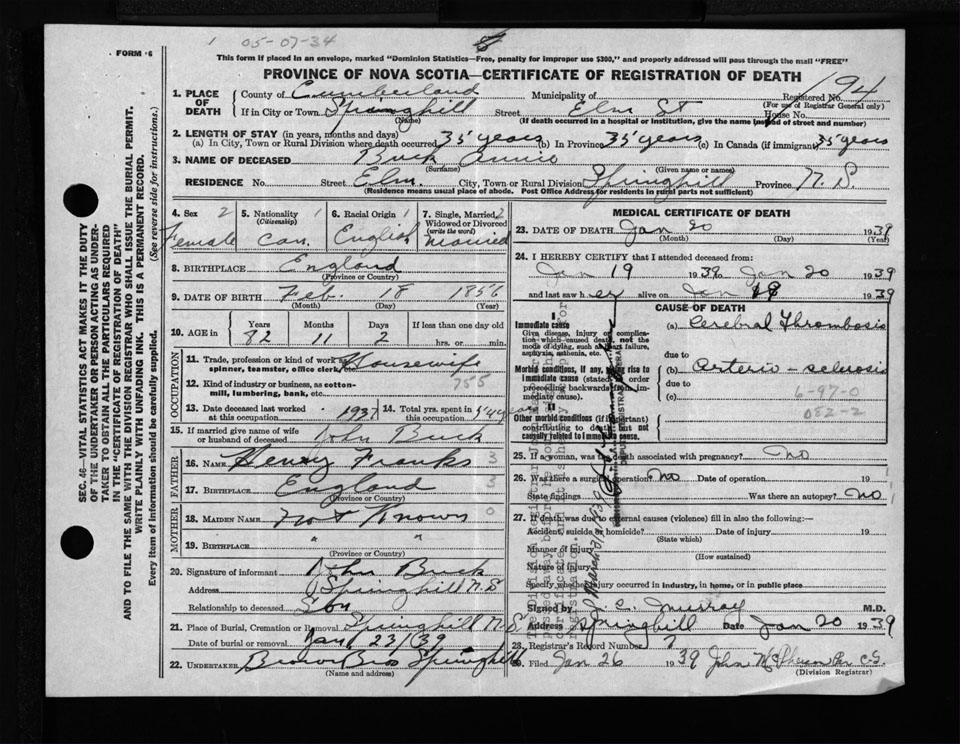 1 05-07-34
FORM 6
This form if placed in an envelope, marked "Dominion Statistics—Free, penalty for improper use $300," and properly addressed will pass through the mail "FREE"
PROVINCE OF NOVA SCOTIA—CERTIFICATE OF REGISTRATION OF DEATH
1. PLACE OF DEATH County of Cumberland Municipality of Registered No. 194
(For use of Registrar General only)
If in City or Town Springhill Street Elm St House No.
(Name) (If death occurred in a hospital or institution, give the name instead of street and number)
2. LENGTH OF STAY (in years, months and days)
(a) In City, Town or Rural Division where death occurred 35 years (b) In Province 35 years (c) In Canada (if immigrant) 35 years
3. NAME OF DECEASED Buck Annie
(Surname) (Given name or names)
RESIDENCE No. Street Elm. City, Town or Rural Division Springhill Province N. S.
(Residence means usual place of abode. Post Office Address for residents in rural parts not sufficient)
4. Sex 2 Female
5. Nationality 1 (Citizenship) Can.
6. Racial Origin 1 English
7. Single, Married, 2 Widowed or Divorced (write the word) Married
8. BIRTHPLACE England
(Province or Country)
9. DATE OF BIRTH Feb. 18 1856
(Month) (Day) (Year)
10. AGE in Years Months Days If less than one day old
82 11 2 hrs. or min.
OCCUPATION
11. Trade, profession or kind of work as spinner, teamster, office clerk, Housewife
12. Kind of industry or business, as cotton-mill, lumbering, bank, etc. 755
13. Date deceased last worked at this occupation 1937 14. Total yrs. spent in this occupation 54 years
15. If married give name of wife or husband of deceased John Buck
FATHER
16. NAME Henry Franks 3
17. BIRTHPLACE England 3
(Province or Country)
MOTHER
18. MAIDEN NAME Not Known 0
19. BIRTHPLACE " "
(Province or Country)
20. Signature of informant John Buck
Address Springhill N. S
Relationship to deceased Son
21. Place of Burial, Cremation or Removal Springhill N. S.
Date of burial or removal Jan 23/39
22. UNDERTAKER Brown Bros Springhill
(Name and address)
MEDICAL CERTIFICATE OF DEATH
23. DATE OF DEATH Jan 20 1939
(Month) (Day) (Year)
24. I HEREBY CERTIFY that I attended deceased from:
Jan 19 1939 to Jan 20 1939
and last saw her alive on Jan 19 1939
CAUSE OF DEATH
I
Immediate cause
Give disease, injury or complication which caused death, not the mode of dying, such as heart failure, asphyxia, asthenia, etc.
(a) Cerebral Thrombosis
due to
Morbid conditions, if any, giving rise to immediate cause (stated in order proceeding backwards from immediate cause)
(b) Arterio-sclerosis
due to
(c)
6-97-0
082-2
II
Other morbid conditions (if important) contributing to death but not causally related to immediate cause.
25. If a woman, was the death associated with pregnancy? No
26. Was there a surgical operation? No Date of operation 19
State findings Was there an autopsy? No
27. If death was due to external causes (violence) fill in also the following:—
Accident, suicide or homicide? Date of injury 19
(State which)
Manner of injury
(How sustained)
Nature of injury
Specify whether injury occurred in industry, in home, or in public place
Signed by J. C. Murray M.D.
Address Springhill Date Jan 20 1939
28. Registrar's Record Number 2
Filed Jan 26 1939
(Division Registrar)
SEC. 46—VITAL STATISTICS ACT MAKES IT THE DUTY
OF THE UNDERTAKER OR PERSON ACTING AS UNDER-
TAKER TO OBTAIN ALL THE PARTICULARS REQUIRED
IN THE "CERTIFICATE OF REGISTRATION OF DEATH"
AND TO FILE THE SAME WITH THE DIVISION REGISTRAR WHO SHALL ISSUE THE BURIAL PERMIT.
WRITE PLAINLY WITH UNFADING INK. THIS IS A PERMANENT RECORD.
Every item of information should be carefully supplied. (See reverse side for instructions.)